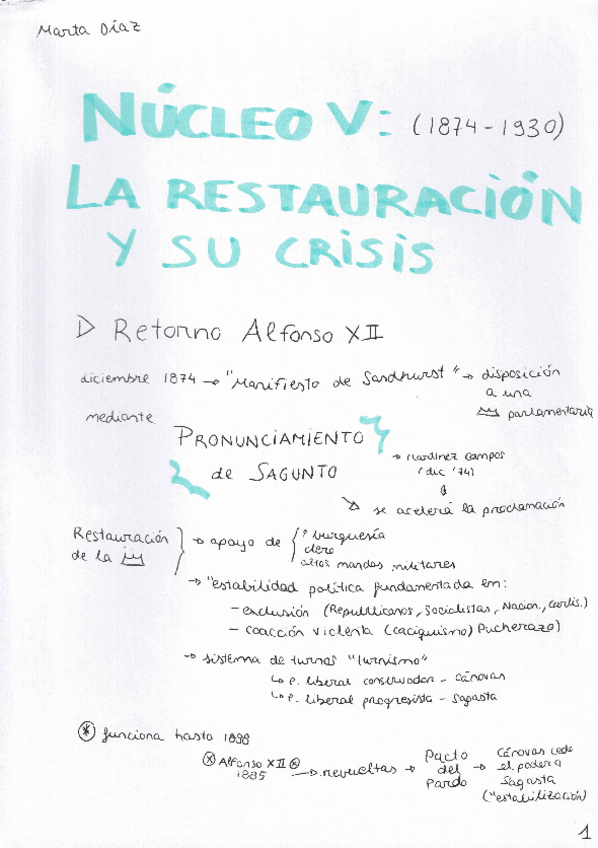 Marta Díaz
NÚCLEO V: (1874-1930)
LA RESTAURACIÓN
Y SU CRISIS
▷ Retorno Alfonso XII
diciembre 1874 → "Manifiesto de Sandhurst" → disposición
a una
parlamentaria
mediante
PRONUNCIAMIENTO
de SAGUNTO
→ Martínez Campos
(dic '74)
↓
↘ se acelera la proclamación
Restauración
de la
→ apoyo de { burguesía
clero
altos mandos militares
→ "estabilidad política fundamentada en:
- exclusión (Republicanos, Socialistas, Nacion., carlis.)
- coacción violenta (caciquismo) Pucherazo)
→ sistema de turnos "turnismo"
↳ P. liberal conservador - Cánovas
↳ P. liberal progresista - Sagasta
* funciona hasta 1898
Alfonso XII
1885
→ revueltas → Pacto
del
Pardo
→ Cánovas cede
el poder a
Sagasta
("estabilización)
1